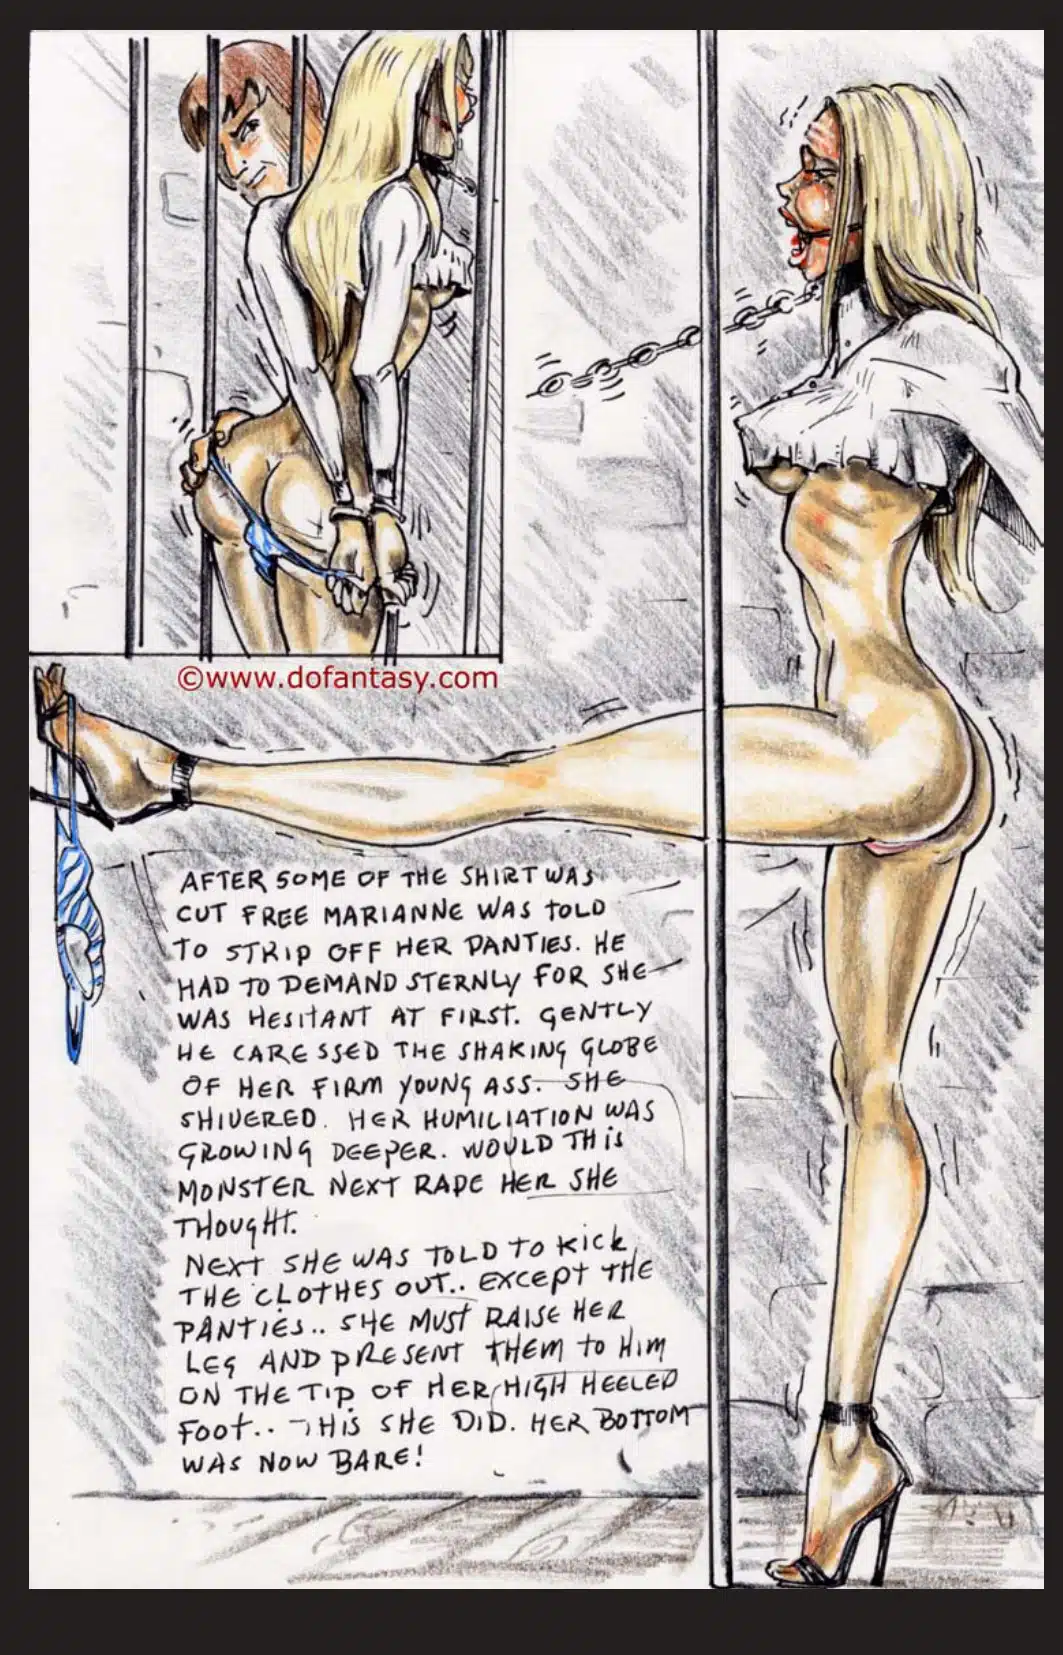 ©www.dofantasy.com
AFTER SOME OF THE SHIRT WAS
CUT FREE MARIANNE WAS TOLD
TO STRIP OFF HER PANTIES. HE
HAD TO DEMAND STERNLY FOR SHE
WAS HESITANT AT FIRST. GENTLY
HE CARESSED THE SHAKING GLOBE
OF HER FIRM YOUNG ASS. SHE
SHIVERED. HER HUMILIATION WAS
GROWING DEEPER. WOULD THIS
MONSTER NEXT RAPE HER SHE
THOUGHT.
NEXT SHE WAS TOLD TO KICK
THE CLOTHES OUT.. EXCEPT THE
PANTIES.. SHE MUST RAISE HER
LEG AND PRESENT THEM TO HIM
ON THE TIP OF HER HIGH HEELED
FOOT.. THIS SHE DID. HER BOTTOM
WAS NOW BARE!